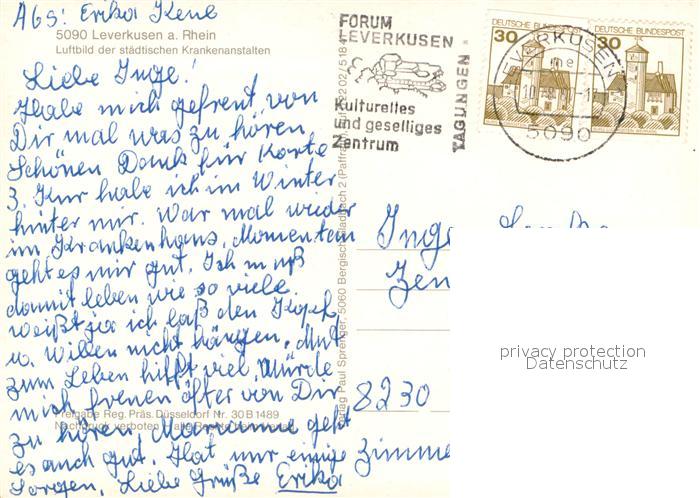 Abs: Erika Keul
5090 Leverkusen a. Rhein
Luftbild der städtischen Krankenanstalten
Liebe Inge!
Habe mich gefreut, von
Dir mal was zu hören,
Schönen Dank für Karte
3. Kur habe ich im Winter
hinter mir. War mal wieder
im Krankenhaus. Momentan
geht es mir gut. Ich muß
damit leben wie so viele.
weißt ja ich laß den Kopf
u. Willen nicht hängen. Mut
zum Leben hilft viel. Würde
mich freuen öfter von Dir
zu hören. Marianne geht
es auch gut. Hat nur einige
Sorgen. Liebe Grüße Erika
Freigabe Reg. Präs. Düsseldorf Nr. 30 B 1489
Nachdruck verboten
Verlag Paul Sprenger, 5060 Bergisch Gladbach 2
FORUM
LEVERKUSEN
Kulturelles
und geselliges
Zentrum
TAGUNGEN
DEUTSCHE BUNDESPOST
30
DEUTSCHE BUNDESPOST
30
LEVERKUSEN
5090
Inge
Zen
8230
Zimme
privacy protection
Datenschutz